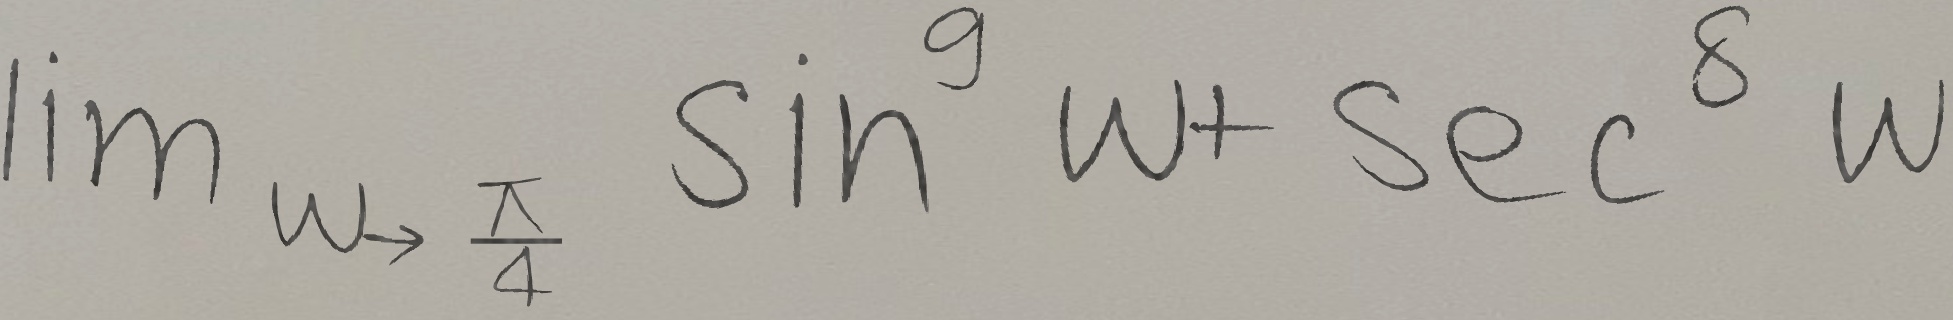 lim_{w→\frac{π}{4}} sin^9 w + sec^8 w